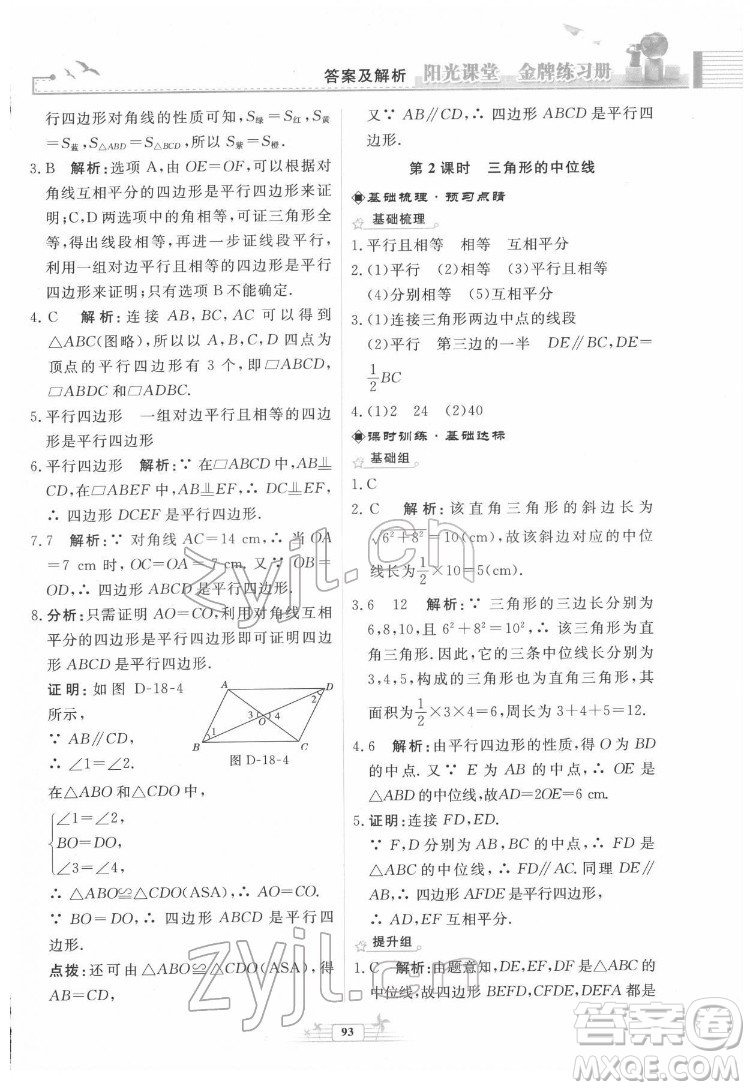 答案及解析 阳光课堂 金牌练习册
行四边形对角线的性质可知，S绿=S红，S黄
=S蓝，S△ABD=S△BCD，所以 S紫=S橙.
3. B 解析：选项 A，由 OE=OF，可得到对
角线互相平分的四边形是平行四边形来
证明；C，D 两选项中的角相等，可证三角形全
等，得出线段相等，再进一步证线段平行，
利用一组对边平行且相等的四边形是平行
四边形来证明；只有选项 B 不能确定.
4. C 解析：连接 AB，BC，AC 可以得到
△ABC(图略)，所以以 A，B，C，D 四点为
顶点的平行四边形有 3 个，即▱ABCD，
▱ABDC 和▱ADBC.
5. 平行四边形 一组对边平行且相等的四边
形是平行四边形
6. 平行四边形 解析：∵ 在▱ABCD 中，AB⫫
CD，在▱ABEF 中，AB⫫EF，∴ CD⫫EF，
∴ 四边形 DCEF 是平行四边形.
7. 7 解析：∵ 对角线 AC=14 cm，∴ 当 OA
=7 cm 时，OC=OA=7 cm. 又∵ OB=
OD，∴ 四边形 ABCD 是平行四边形.
8. 分析：只需证明 AO=CO，利用对角线互相
平分的四边形是平行四边形即可证明四边
形 ABCD 是平行四边形.
证明：如图 D-18-4
所示，
∵ AB∥CD，
∴ ∠1=∠2.
A D 2 3 4 O B 1 C
图 D-18-4
在△ABO 与△CDO 中，
{∠1=∠2，
BO=DO，
∠3=∠4，
∴ △ABO≌△CDO(ASA)，∴ AO=CO.
∵ BO=DO，∴ 四边形 ABCD 是平行四
边形.
点拨：还可由△ABO≌△CDO(ASA)，得
AB=CD，
又∵ AB∥CD，∴ 四边形 ABCD 是平行四
边形.
第 2 课时 三角形的中位线
基础梳理·预习点睛
基础梳理
1. 平行且相等 相等 互相平分
2. (1)平行 (2)相等 (3)平行且相等
(4)分别相等 (5)互相平分
3. (1)连接三角形两边中点的线段
(2)平行 第三边的一半 DE∥BC，DE=
1/2 BC
4. (1)2 24 (2)40
课时训练·基础达标
基础组
1. C
2. C 解析：该直角三角形的斜边长为
√(6²+8²)=10(cm)，故该斜边对应的中位
线长为1/2×10=5(cm).
3. 6 12 解析：∵ 三角形的三边长分别为
6，8，10，且 6²+8²=10²，∴ 该三角形为直
角三角形，∴ 这个三角形三条中位线长为
3，4，5，构成的三角形也为直角三角形，其
面积为1/2×3×4=6，周长为 3+4+5=12.
4. 6 解析：由平行四边形的性质，得 O 为 BD
的中点. 又∵ E 是 AB 的中点，∴ OE 是
△ABD 的中位线，故AD=2OE=6 cm.
5. 证明：连接 FD，ED.
∵ F，D 分别为 AB，BC 的中点，∴ FD 是
△ABC 的中位线，∴ FD∥AC. 同理 DE∥
AB，∴ 四边形 AFDE 是平行四边形.
∴ AD，EF 互相平分.
提升组
1. C 解析：由题意知，DE，EF，DF 是△ABC
的中位线，∴ 四边形 BEFD，CFDE，DAFE 都是
93
zyjl.cn
zyjl.cn
答案圈
MXQE.COM